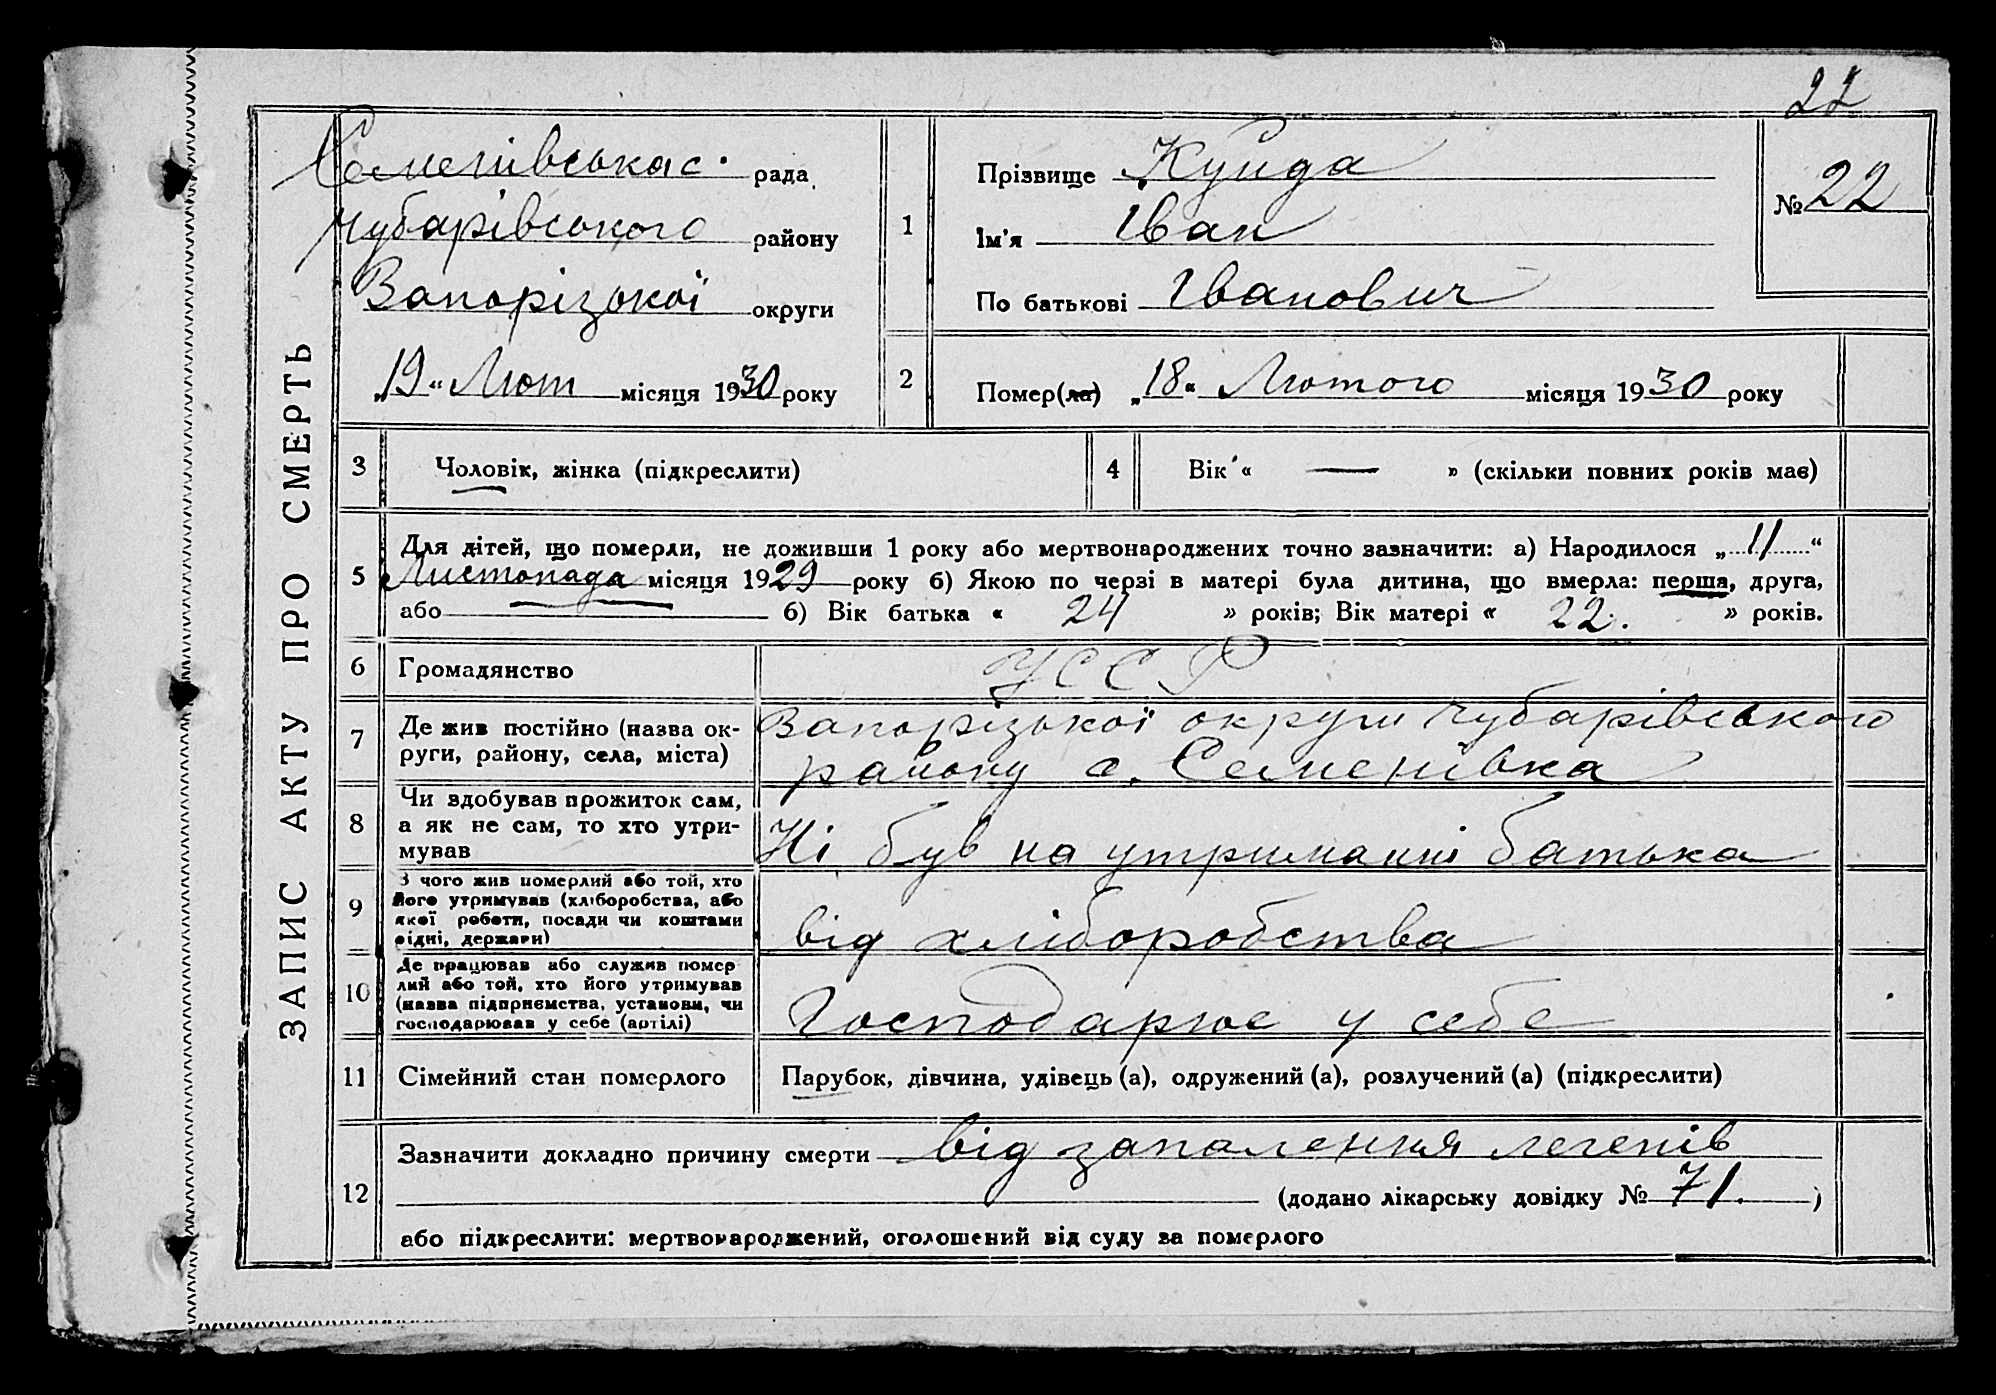 22
ЗАПИС АКТУ ПРО СМЕРТЬ
Семенівська с. рада
Чубарівського району
Запорізької округи
„19“ Лют місяця 1930 року
1
Прізвище Куйда
Ім’я Іван
По батькові Іванович
№ 22
2
Помер(ла) „18“ Лютого місяця 1930 року
3
Чоловік, жінка (підкреслити)
4
Вік « — » (скільки повних років має)
5
Для дітей, що померли, не доживши 1 року або мертвонароджених точно зазначити: а) Народилося „11“
Листопада місяця 1929 року б) Якою по черзі в матері була дитина, що вмерла: перша, друга,
або б) Вік батька « 24 » років; Вік матері « 22. » років.
6
Громадянство
УССР
7
Де жив постійно (назва ок-
руги, району, села, міста)
Запорізької округи Чубарівського
району с. Семенівка
8
Чи здобував прожиток сам,
а як не сам, то хто утри-
мував
Ні був на утриманні батька
9
З чого жив померлий або той, хто
його утримував (хліборобства, або
якої роботи, посади чи коштами
рідні, держави)
від хліборобства
10
Де працював або служив помер
лий або той, хто його утримував
(назва підприємства, установи, чи
господарював у себе (артілі)
Господарює у себе
11
Сімейний стан померлого
Парубок, дівчина, удівець (а), одружений (а), розлучений (а) (підкреслити)
12
Зазначити докладно причину смерти від запалення легенів
(додано лікарську довідку № 71. )
або підкреслити: мертвонароджений, оголошений від суду за померлого